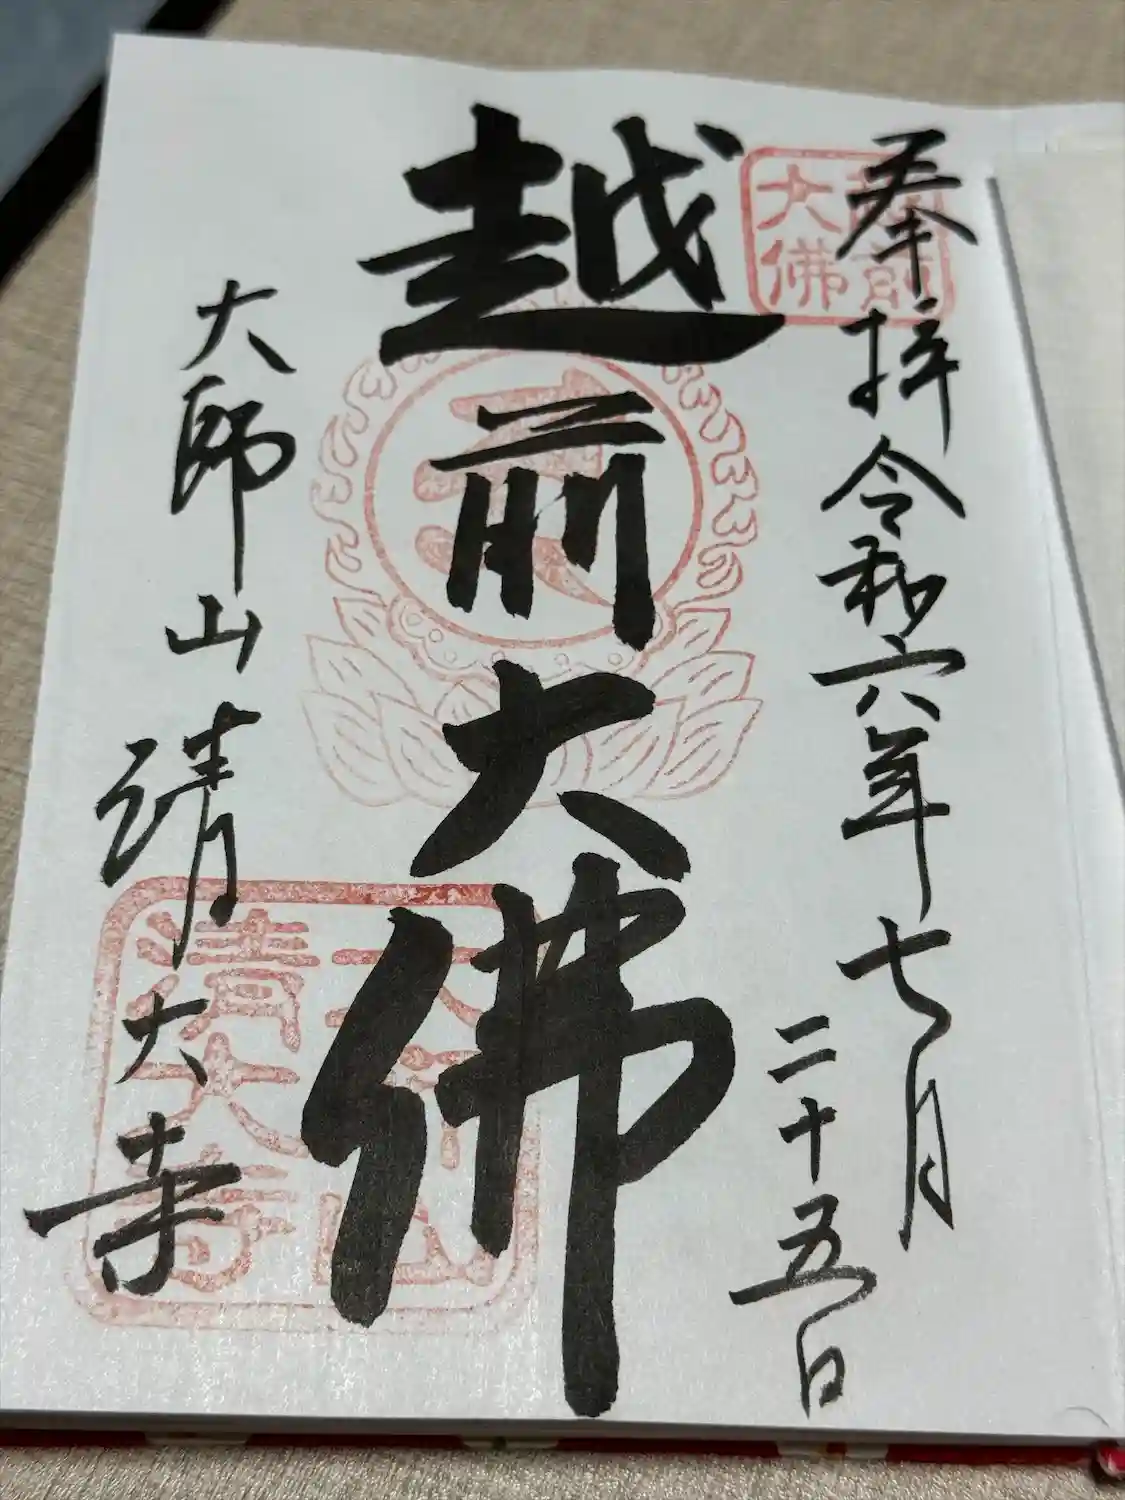 奉拝 令和六年七月
二十五日
越前大佛
大師山 清大寺
越前
大佛
大師山
清大寺